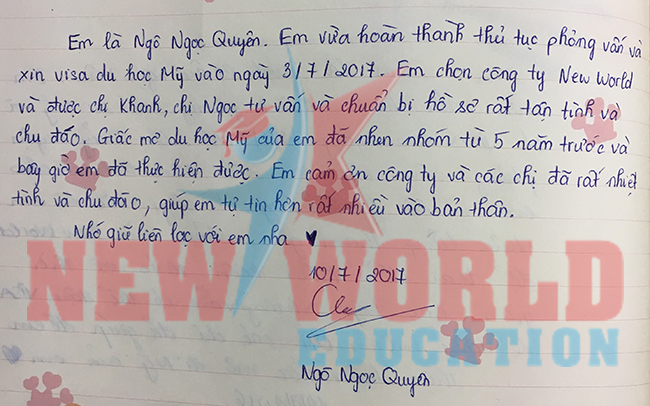 Em là Ngô Ngọc Quyên. Em vừa hoàn thành thủ tục phỏng vấn và
xin visa du học Mỹ vào ngày 3/7/2017. Em chọn công ty New World
và được chị Khanh, chị Ngọc tư vấn và chuẩn bị hồ sơ rất tận tình và
chu đáo. Giấc mơ du học Mỹ của em đã nhen nhóm từ 5 năm trước và
bây giờ em đã thực hiện được. Em cảm ơn công ty và các chị đã rất nhiệt
tình và chu đáo, giúp em tự tin hơn rất nhiều vào bản thân.
Nhớ giữ liên lạc với em nha ♥
10/7/2017
NEW WORLD
EDUCATION
Ngô Ngọc Quyên